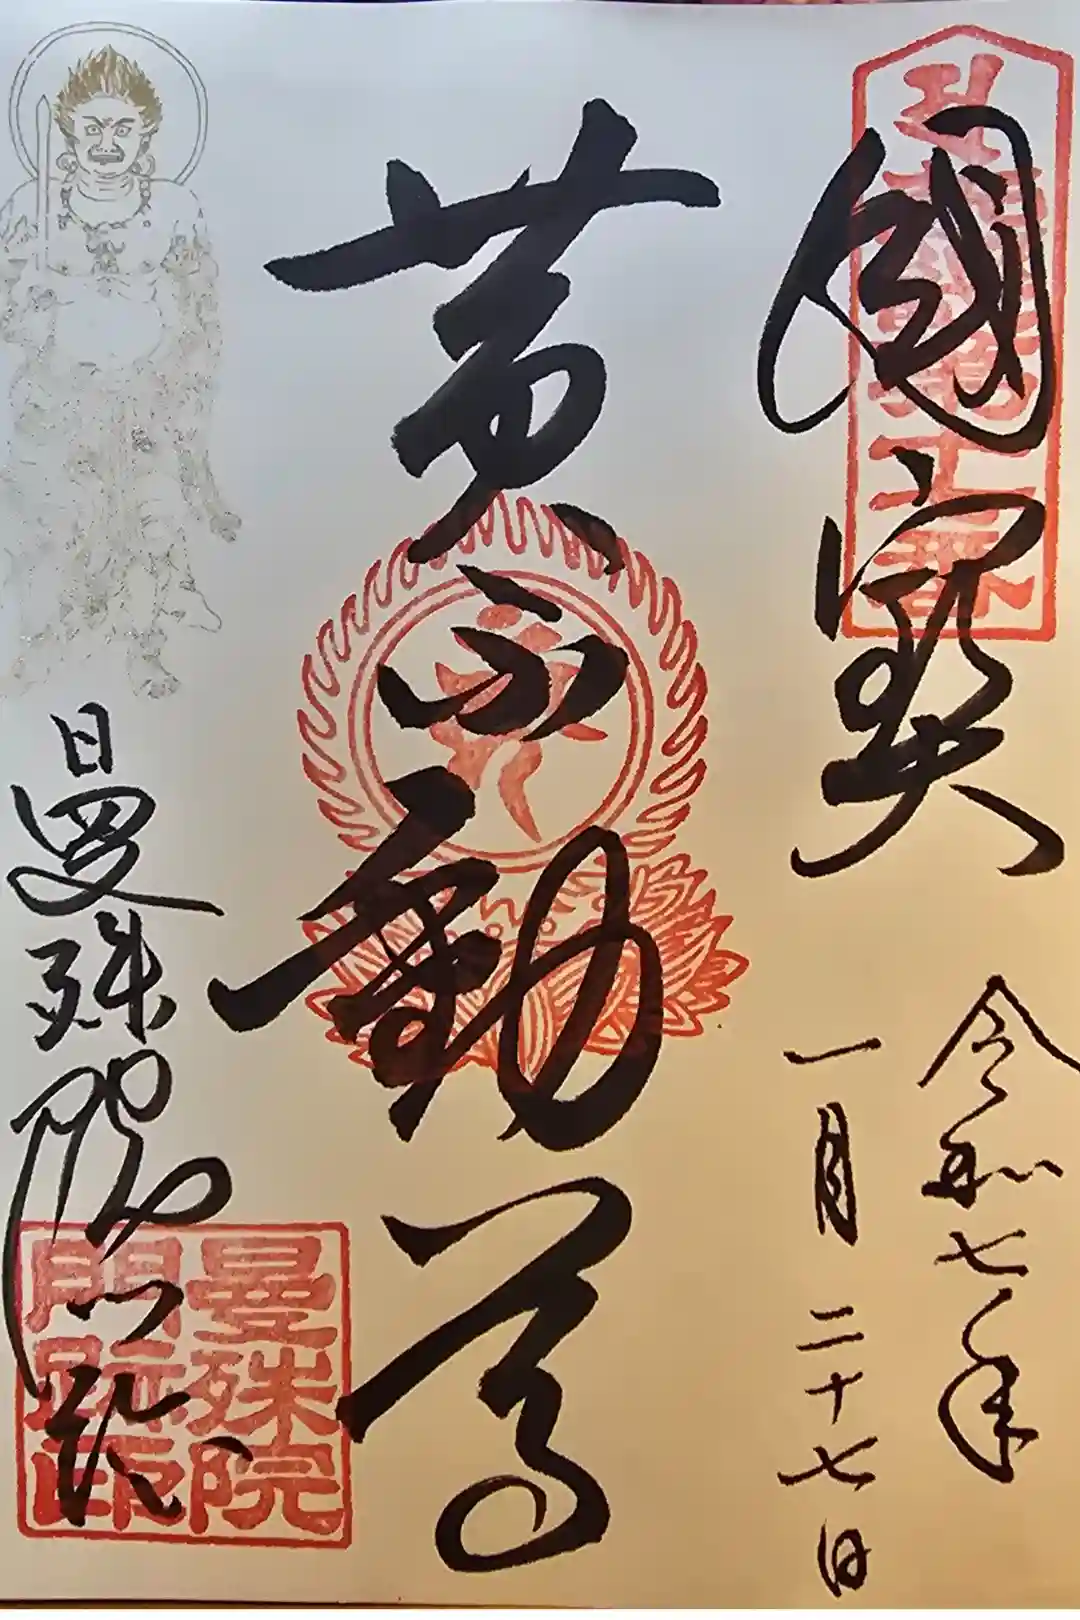 國寳
令和七年
一月二十七日
黄不動尊
曼殊院門跡
曼殊院
門跡印